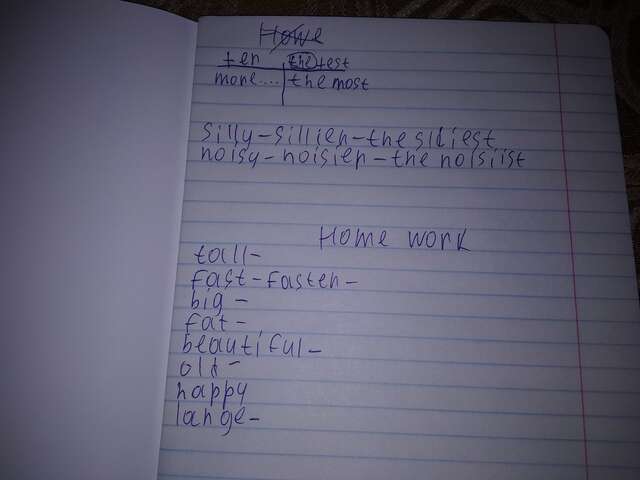 Howe
+er the+est
more.... the most
silly-sillier-the silliest
noisy-noisier-the noisiist
Home work
tall-
fast-faster-
big-
fat-
beautiful-
old-
happy
large-